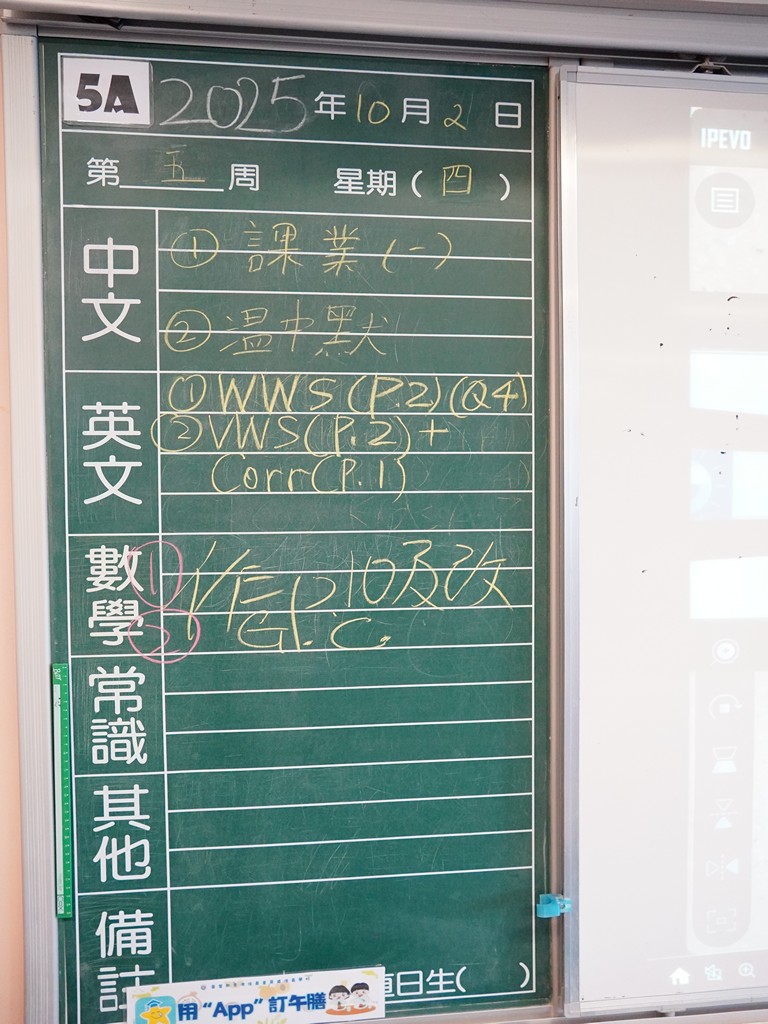 5A 2025年10月2日
第五周 星期(四)
中文
① 課業(一)
② 溫中默
英文
① WWS(P.2)(Q4)
② VWS(P.2)+
Corr(P.1)
數學
① 作P10及改
② G.C.
常識
其他
備註
直日生( )
用“App”訂午膳
IPEVO